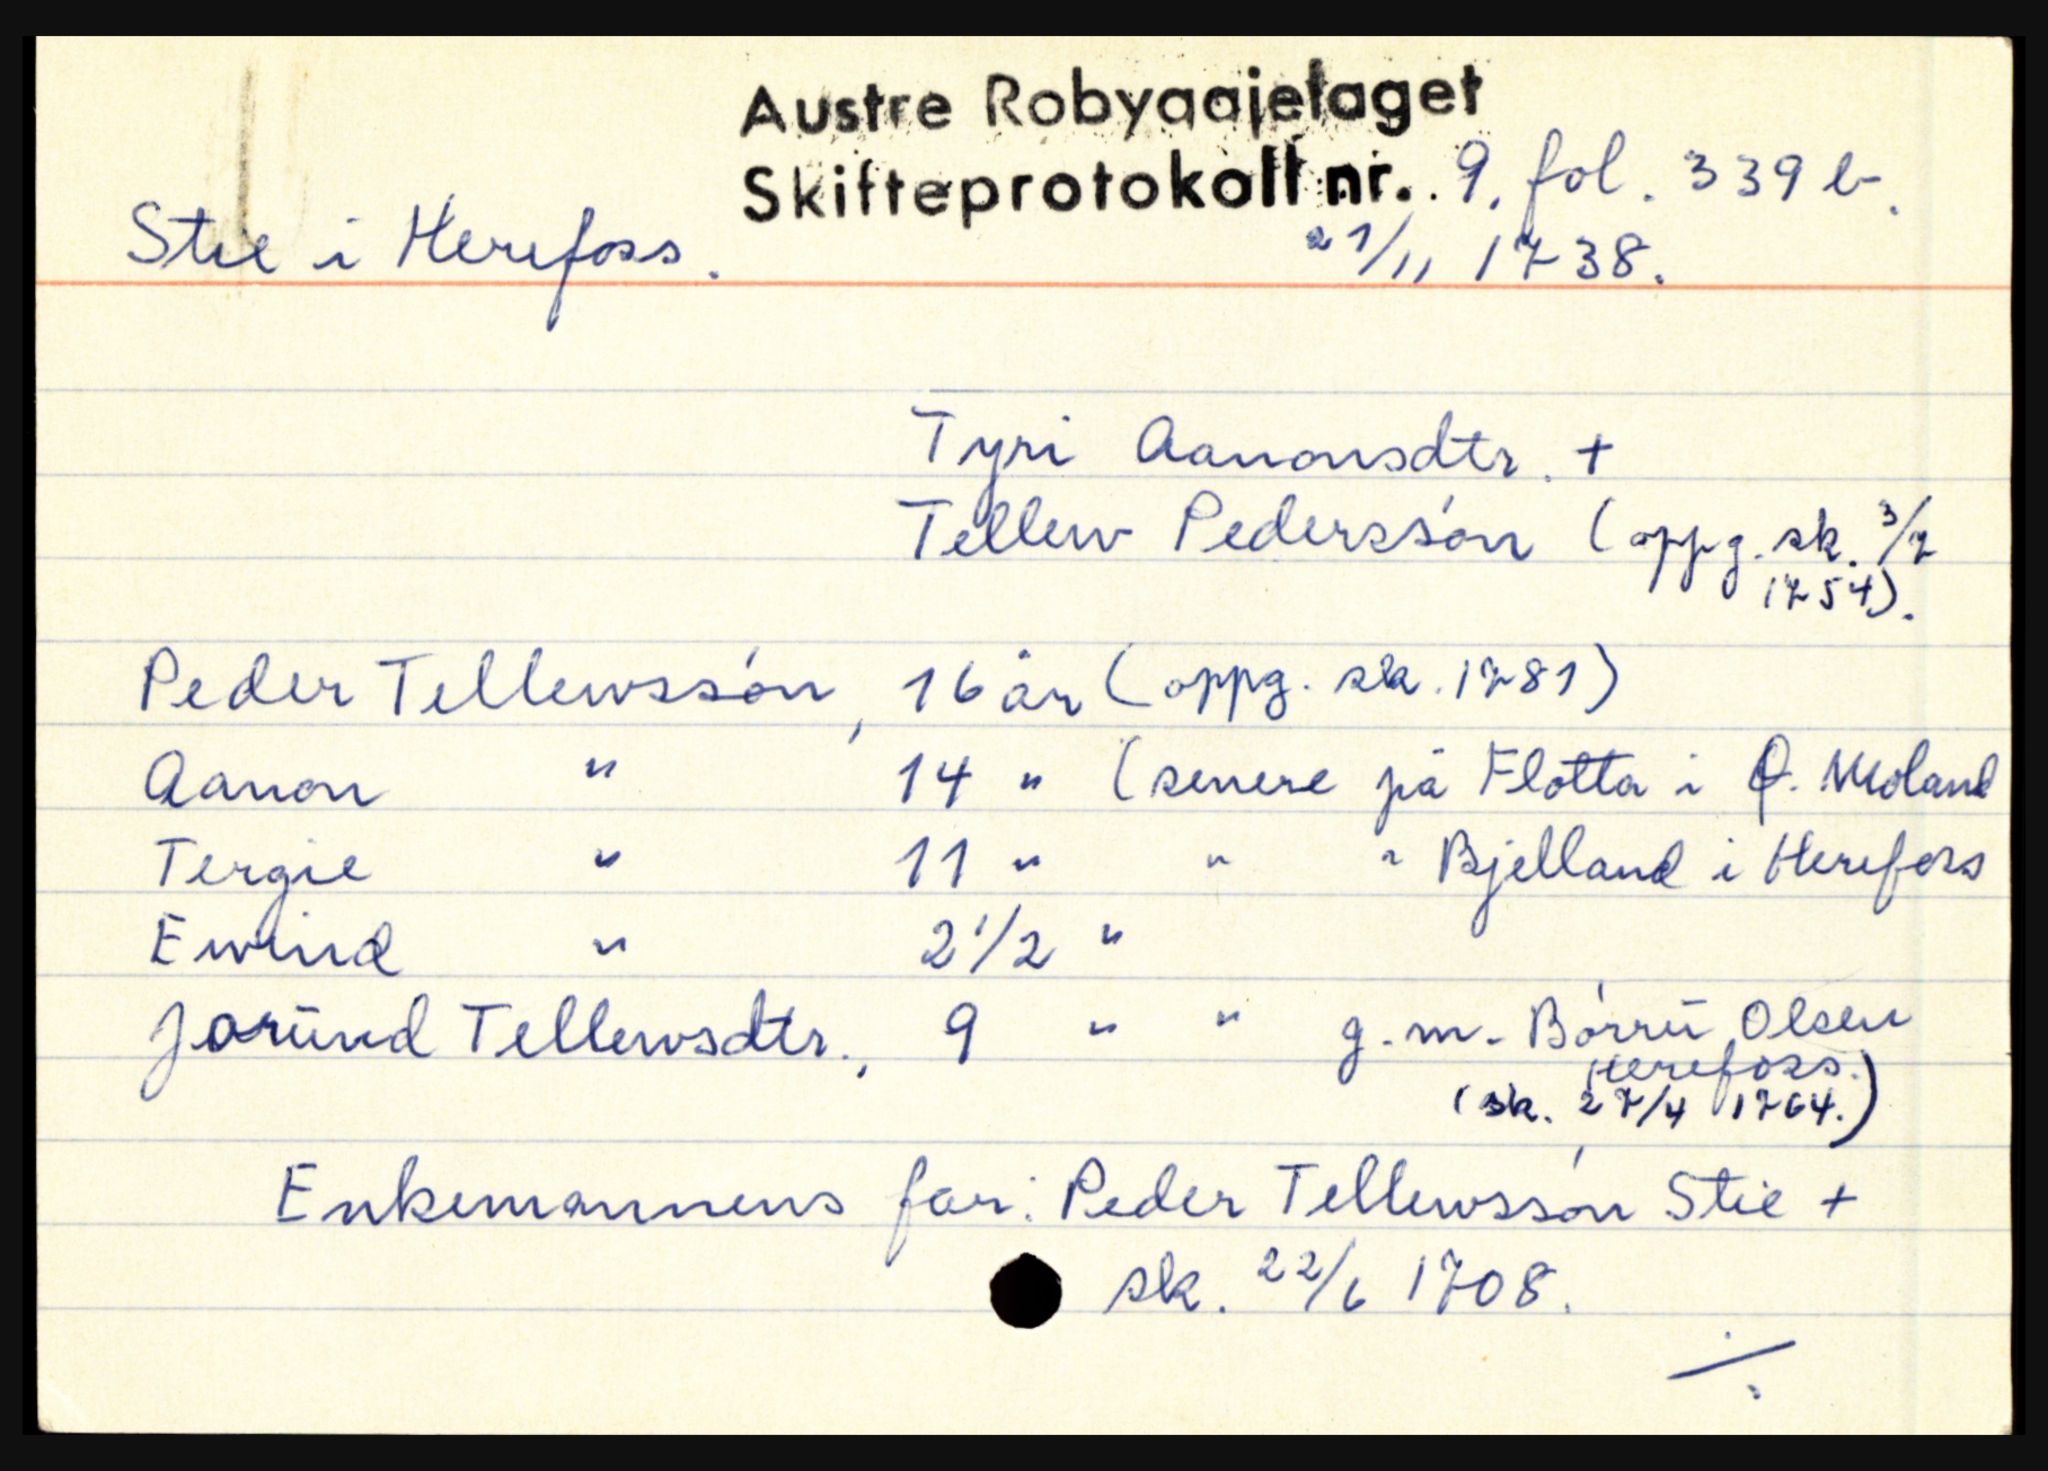 Austre Robygdelaget
Skifteprotokoll nr. 9, fol. 339 b.
Stie i Herefoss. 21/11 1738.
Tyri Aanonsdtr. +
Tellew Pederssón (oppg. sk. 3/2
1754).
Peder Tellewssón, 16 år (oppg. sk. 1781)
Aanon " 14 " (senere på Flotta i Ø. Moland
Tergie " 11 " " " Bjelland i Herefoss
Ewind " 2 1/2 "
Jorund Tellewsdtr., 9 " " g.m. Bórru Olsen
Herefoss.
(sk. 27/4 1764.)
Enkemannens far: Peder Tellewssón Stie +
sk. 22/6 1708.